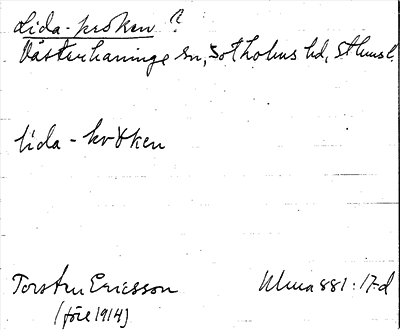 Lida-kroken ?
Västerhaninge sn, Sotholms hd, Sthms l.
lida-krωken
Torsten Ericsson Ulma 881:17.d
(före 1914)